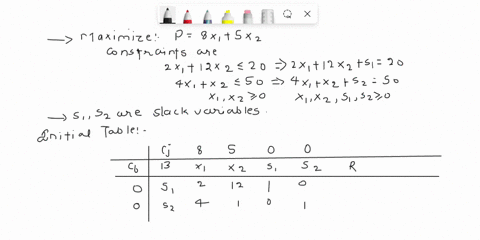 → Maximize: P = 8x₁ + 5x₂
Constraints are
2x₁ + 12x₂ ≤ 20 ⇒ 2x₁ + 12x₂ + s₁ = 20
4x₁ + x₂ ≤ 50 ⇒ 4x₁ + x₂ + s₂ = 50
x₁, x₂ ≥ 0 x₁, x₂, s₁, s₂ ≥ 0
→ s₁, s₂ are slack variables.
Initial Table:-
Cj 8 5 0 0
Cb 13 x₁ x₂ s₁ s₂ R
0 s₁ 2 12 1 0
0 s₂ 4 1 0 1